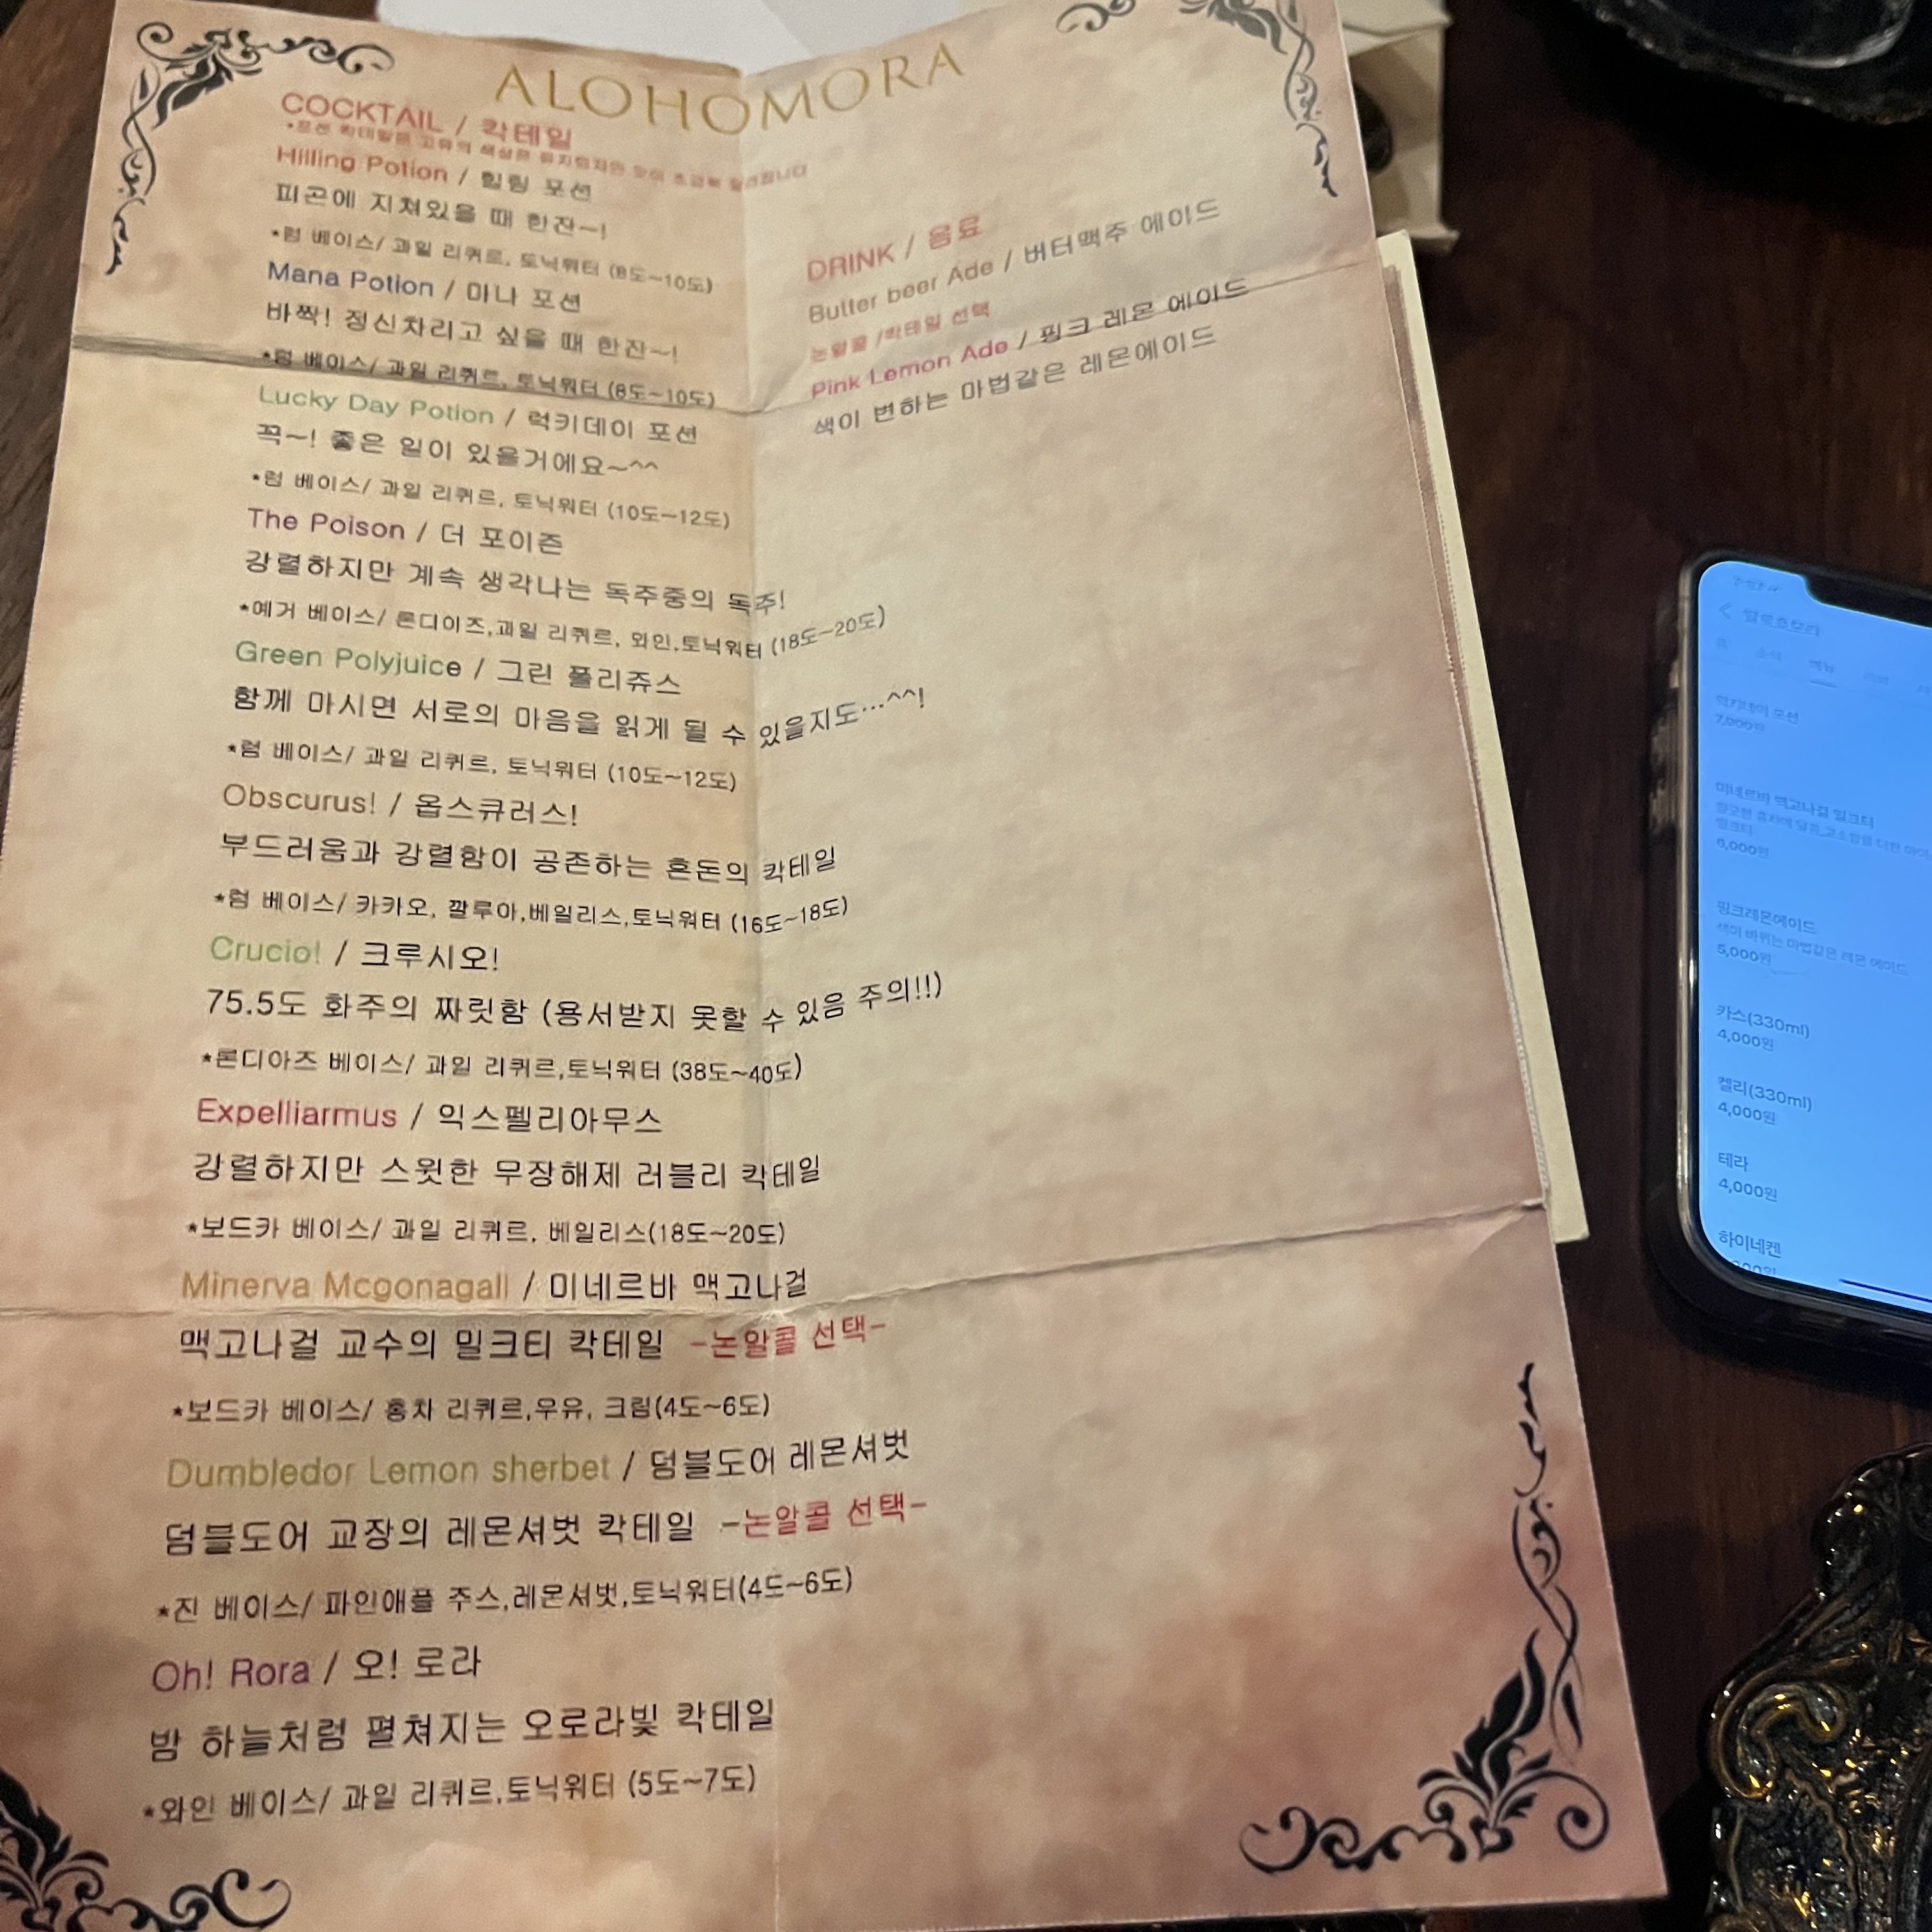 ALOHOMORA
COCKTAIL / 칵테일
*포션 칵테일은 고유의 색상은 유지되지만 맛이 조금씩 달라집니다
Hilling Potion / 힐링 포션
피곤에 지쳐있을 때 한잔~!
*럼 베이스/ 과일 리퀴르, 토닉워터 (8도~10도)
Mana Potion / 마나 포션
바짝! 정신차리고 싶을 때 한잔~!
*럼 베이스/ 과일 리퀴르, 토닉워터 (8도~10도)
Lucky Day Potion / 럭키데이 포션
꼭~! 좋은 일이 있을거에요~^^
*럼 베이스/ 과일 리퀴르, 토닉워터 (10도~12도)
The Poison / 더 포이즌
강렬하지만 계속 생각나는 독주중의 독주!
*예거 베이스/ 론디이즈,과일 리퀴르, 와인,토닉워터 (18도~20도)
Green Polyjuice / 그린 폴리쥬스
함께 마시면 서로의 마음을 읽게 될 수 있을지도...^^!
*럼 베이스/ 과일 리퀴르, 토닉워터 (10도~12도)
Obscurus! / 옵스큐러스!
부드러움과 강렬함이 공존하는 혼돈의 칵테일
*럼 베이스/ 카카오, 깔루아,베일리스,토닉워터 (16도~18도)
Crucio! / 크루시오!
75.5도 화주의 짜릿함 (용서받지 못할 수 있음 주의!!)
*론디아즈 베이스/ 과일 리퀴르,토닉워터 (38도~40도)
Expelliarmus / 익스펠리아무스
강렬하지만 스윗한 무장해제 러블리 칵테일
*보드카 베이스/ 과일 리퀴르, 베일리스(18도~20도)
Minerva Mcgonagall / 미네르바 맥고나걸
맥고나걸 교수의 밀크티 칵테일 -논알콜 선택-
*보드카 베이스/ 홍차 리퀴르,우유, 크림(4도~6도)
Dumbledor Lemon sherbet / 덤블도어 레몬셔벗
덤블도어 교장의 레몬셔벗 칵테일 -논알콜 선택-
*진 베이스/ 파인애플 주스,레몬셔벗,토닉워터(4도~6도)
Oh! Rora / 오! 로라
밤 하늘처럼 펼쳐지는 오로라빛 칵테일
*와인 베이스/ 과일 리퀴르,토닉워터 (5도~7도)
DRINK / 음료
Butter beer Ade / 버터맥주 에이드
논알콜 /칵테일 선택
Pink Lemon Ade / 핑크 레몬 에이드
색이 변하는 마법같은 레몬에이드
알로호모라
홈 소식 메뉴 리뷰
럭키데이 포션
7,000원
미네르바 맥고나걸 밀크티
향긋한 홍차에 달콤,고소함을 더한
밀크티
6,000원
핑크레몬에이드
색이 바뀌는 마법같은 레몬 에이드
5,000원
카스(330ml)
4,000원
켈리(330ml)
4,000원
테라
4,000원
하이네켄